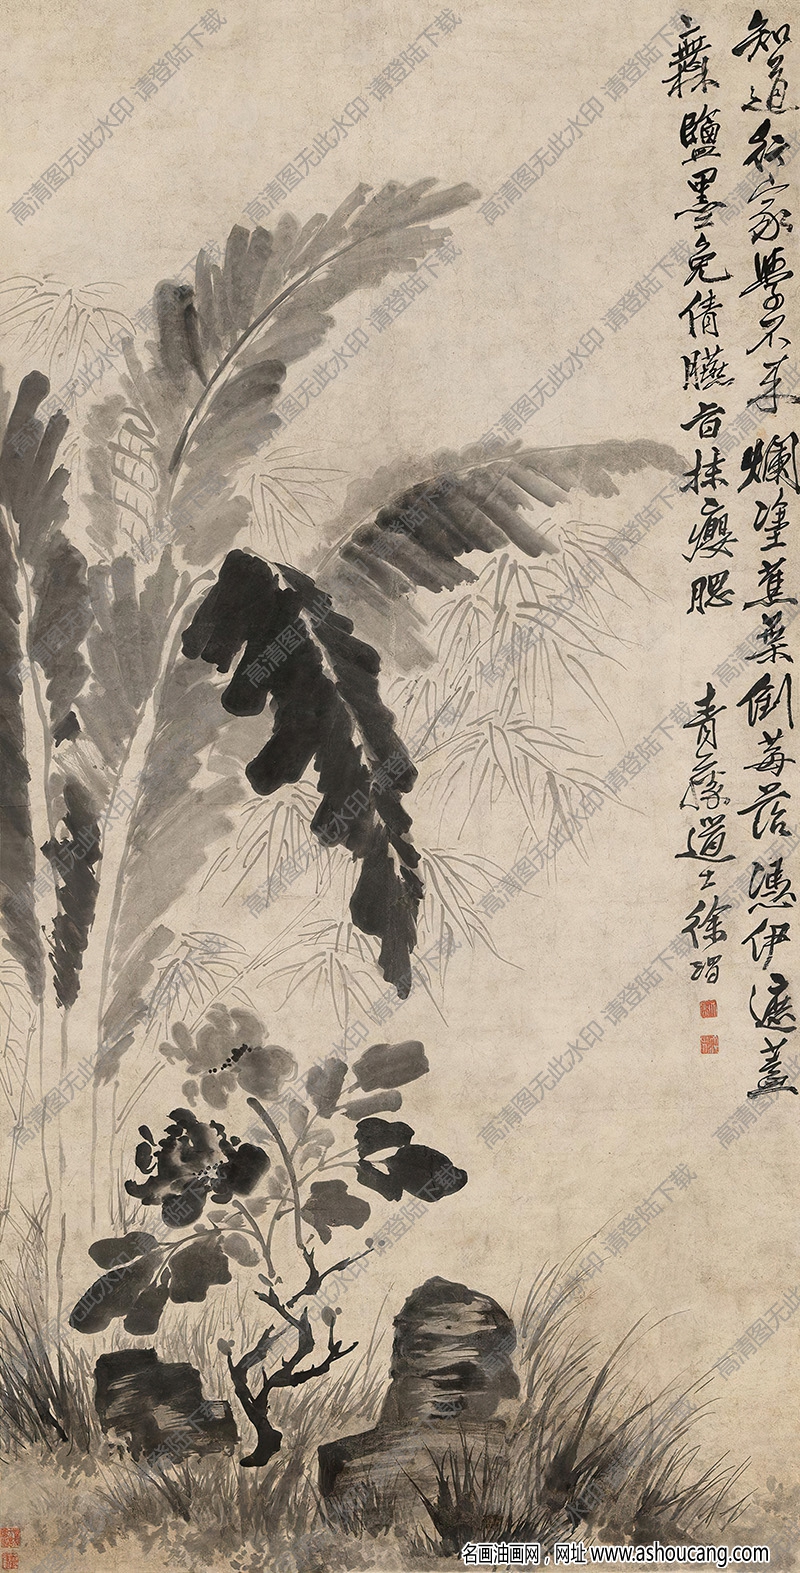 知道行家學不来爛塗蕉葉倒莓苔憑伊遮蓋
無鹽墨免倩臙脂抹癭腮
青藤道士徐渭
高清图无此水印 请登陆下载
名画油画网，网址 www.ashoucang.com